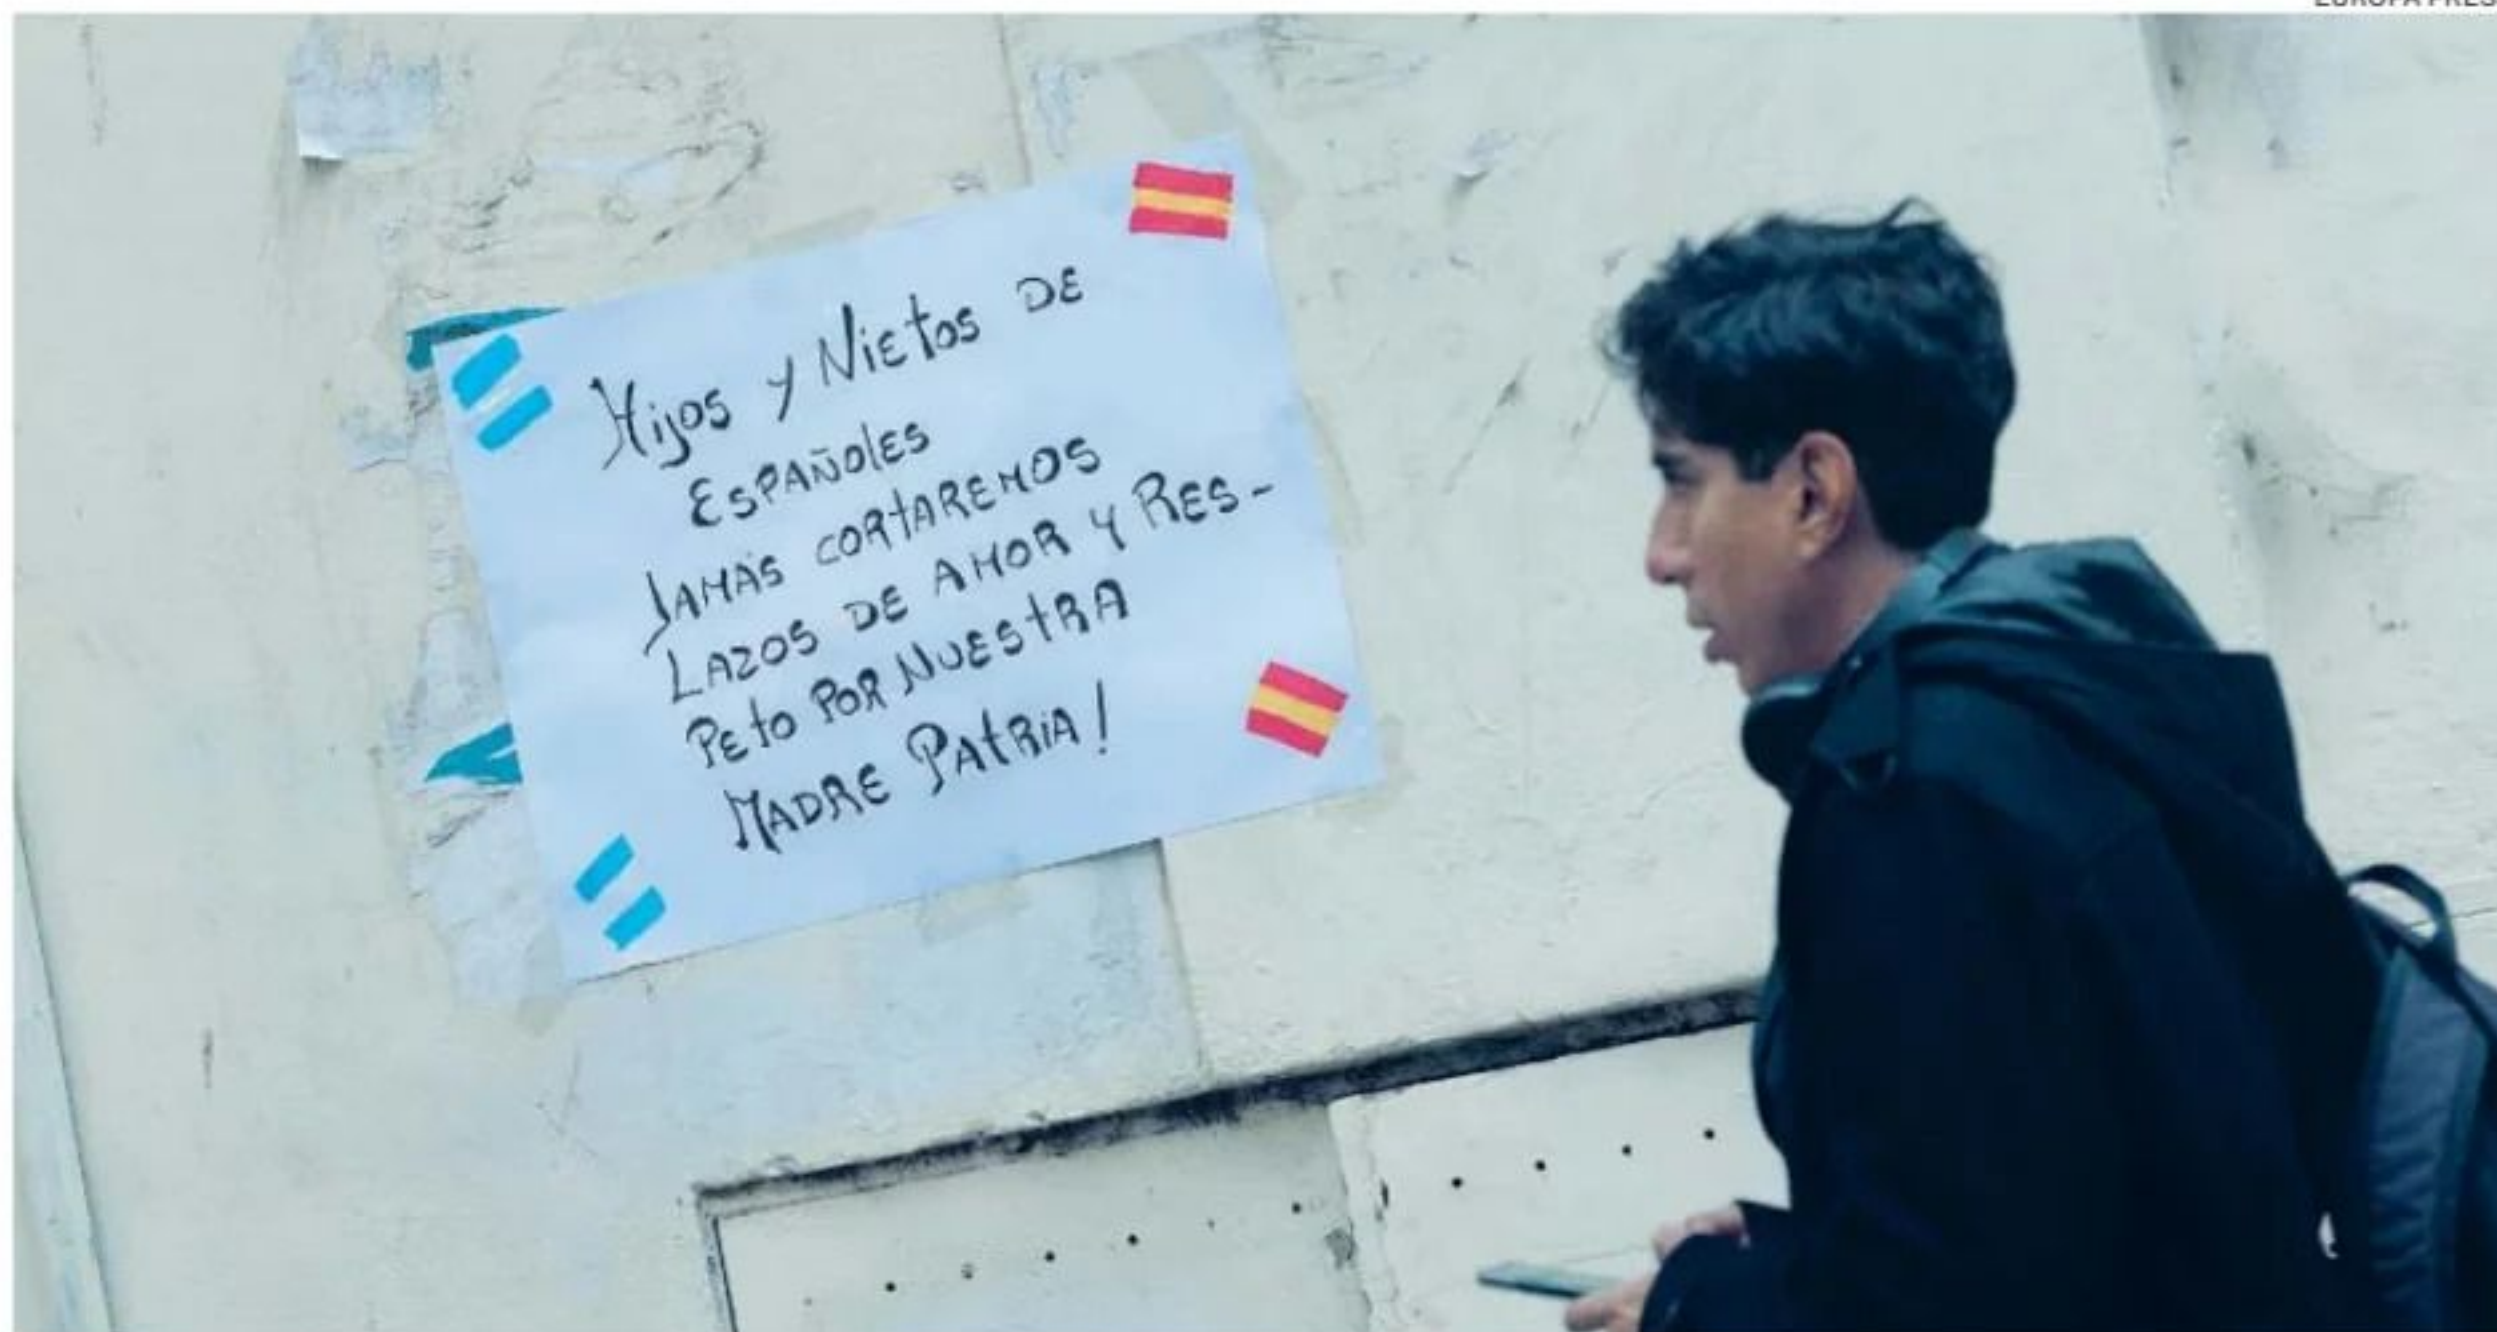 EUROPA PRES
Hijos y Nietos DE
ESPAÑOlES
JAMÁS CORTAREMOS
LAZOS DE AMOR Y RES-
PETO POR NUESTRA
MADRE PATRIA!